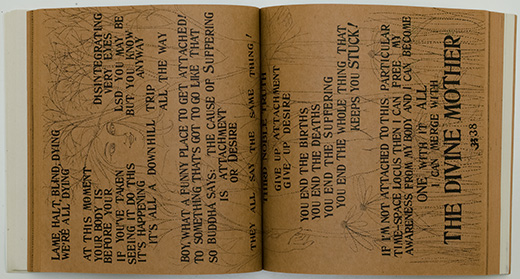 LAME, HALT, BLIND, DYING
WE'RE ALL DYING
AT THIS MOMENT
YOUR BODY IS DISINTEGRATING
BEFORE YOUR VERY EYES
IF YOU'VE TAKEN LSD YOU MAY BE
SEEING IT DO THIS BUT YOU KNOW
IT'S HAPPENING ANYWAY
IT'S ALL A DOWNHILL TRIP ALL THE WAY
BOY, WHAT A FUNNY PLACE TO GET ATTACHED!
TO SOMETHING THAT'S GOT TO GO LIKE THAT
SO BUDDHA SAYS: THE CAUSE OF SUFFERING
IS ATTACHMENT
OR DESIRE
THEY ALL SAY THE SAME THING!
THIRD NOBLE TRUTH
GIVE UP ATTACHMENT
GIVE UP DESIRE
YOU END THE BIRTHS
YOU END THE DEATHS
YOU END THE SUFFERING
YOU END THE WHOLE THING THAT
KEEPS YOU STUCK!
IF I'M NOT ATTACHED TO THIS PARTICULAR
TIME-SPACE LOCUS THEN I CAN FREE MY
AWARENESS FROM MY BODY AND I CAN BECOME
ONE WITH IT ALL
I CAN MERGE WITH
THE DIVINE MOTHER
38